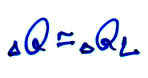 ΔQ ≃ ΔQL